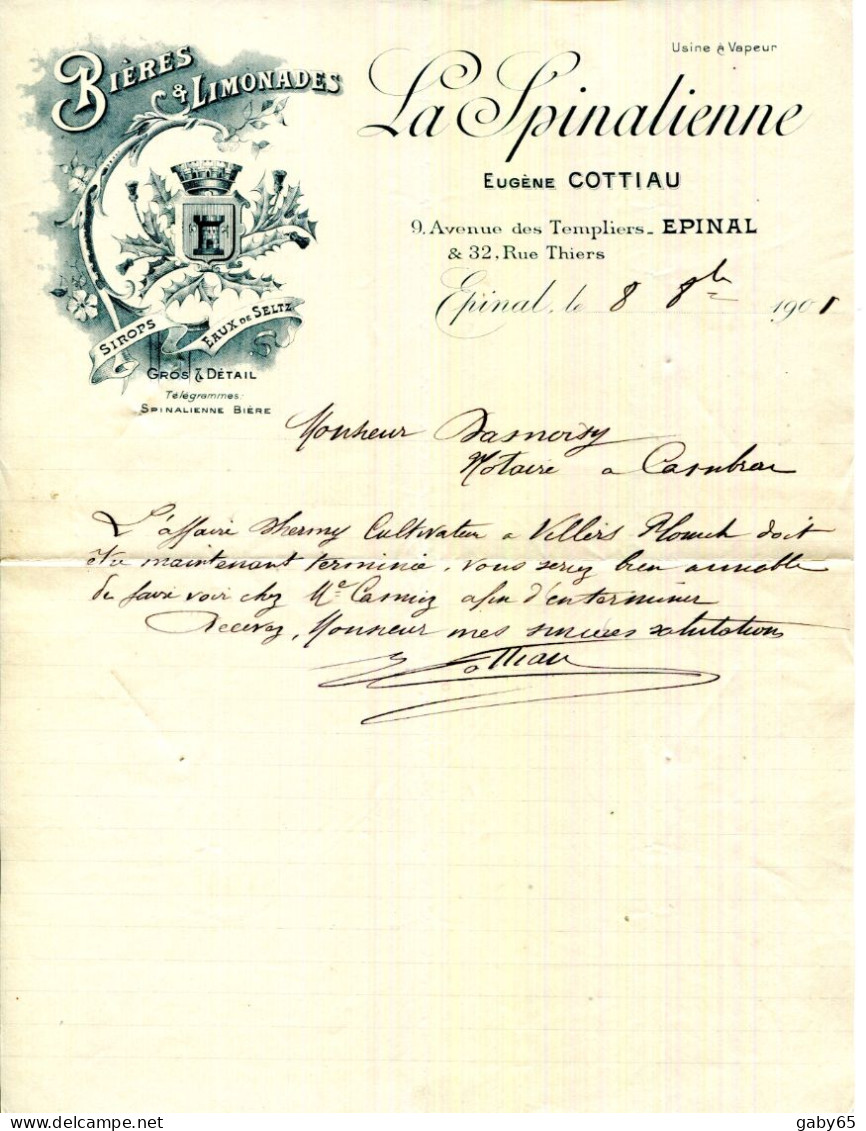 Usine à Vapeur
BIÈRES
& LIMONADES
La Spinalienne
EUGÈNE COTTIAU
9, Avenue des Templiers - EPINAL
& 32, Rue Thiers
Epinal, le 8 8bre 1901
SIROPS
EAUX DE SELTZ
GROS & DÉTAIL
Télégrammes:
SPINALIENNE BIÈRE
Monsieur
Notaire a Cambrai
L'affaire Cultivateur a Villers Plouich doit
etre maintenant terminée, vous seriez bien aimable
de faire voir chez Me afin d'en terminer
Recevez, Monsieur mes sinceres salutations
Cottiau
www.delcampe.net
gaby65